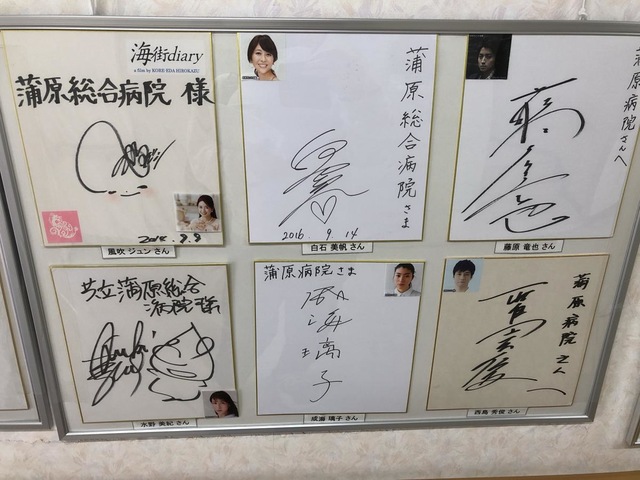 海街diary
a film by KORE-EDA HIROKAZU
蒲原総合病院 様
風吹 ジュン さん
蒲原総合病院さま
2016. 9. 14
白石 美帆 さん
蒲原病院さんへ
藤原 竜也 さん
共立蒲原総合
病院様
水野 美紀 さん
蒲原病院さま
成瀬 璃子
成瀬 璃子 さん
蒲原病院さんへ
西島 秀俊 さん